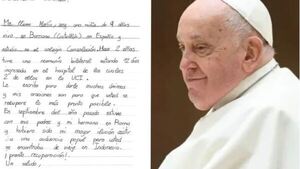 Me llamo María, soy una niña de 9 años
vivo en Barcena (Cantabria) en España y
estudio en el colegio
tuve una neumonía bilateral estuve 12 días
ingresada en el hospital de
2 de ellos en la UCI.
Le escribo para darle muchos ánimos
y mis oraciones son para que usted se
recupere lo más pronto posible.
En septiembre del año pasado estuve
con mis padres y mi hermana en Roma
y hubiera sido mi mayor ilusión asistir
a una audiencia papal pero usted
se encontraba de viaje en Indonesia.
¡ pronta recuperación!
Un saludo,